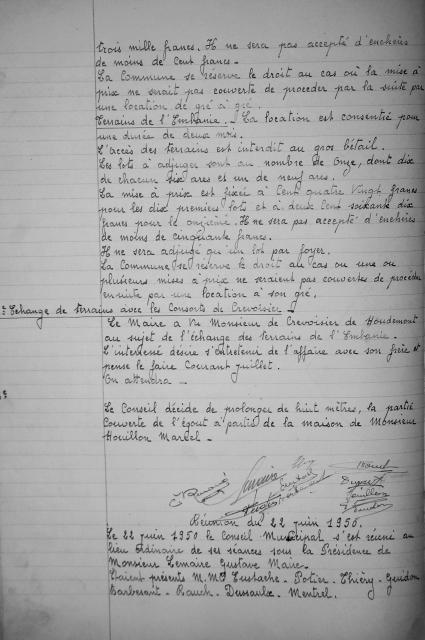 trois mille francs. Il ne sera pas accepté d'enchères
de moins de Cent francs.-
La Commune se réserve le droit au cas où la mise à
prix ne serait pas couverte de proceder par la suite par
une location de gré à gré.
Terrains de l'Embanie._ La location est consentie pour
une durée de deux mois.
L'accès des terrains est interdit au gros bétail.
Les lots à adjuger sont au nombre de Onze, dont dix
de chacun six ares et un de neuf ares.
La mise à prix est fixée à Cent quatre Vingt francs
pour les dix premiers lots et à deux Cent soixante dix
francs pour le onzième. Il ne sera pas accepté d'enchères
de moins de cinquante francs.
Il ne sera adjugé qu'un lot par foyer.
La Commune se réserve le droit au cas ou une ou
plusieurs mises à prix ne seraient pas couvertes de procéder
ensuite par une location à son gré.
Echange de terrains avec les Consorts de Crevoisier _
Le Maire a Vu Monsieur de Crevoisier de Houdemont
au sujet de l'échange des terrains de l'Embanie.
L'interessé désire s'entretenir de l'affaire avec son frère et
pense le faire Courant juillet.
On attendra _
Le Conseil décide de prolonger de huit mètres, la partie
couverte de l'égout à partir de la maison de Monsieur
Houillon Marcel _
Réunion du 22 juin 1950.
Le 22 juin 1950 le Conseil Municipal s'est réuni au
lieu Ordinaire de ses séances sous la Présidence de
Monsieur Lemaire Gustave Maire.
Etaient présents M.M. Eustache - Potier - Thiéry - Guidon
Barberant - Rauch - Dussaulx - Mentrel.